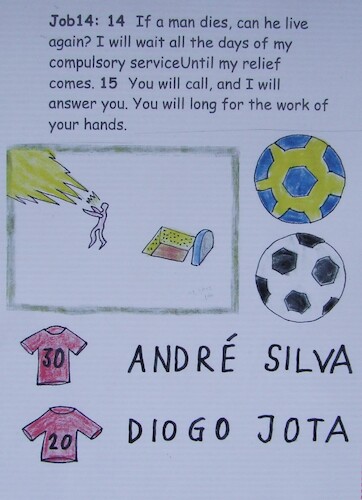 Job14: 14 If a man dies, can he live
again? I will wait all the days of my
compulsory serviceUntil my relief
comes. 15 You will call, and I will
answer you. You will long for the work of
your hands.
30 ANDRÉ SILVA
20 DIOGO JOTA